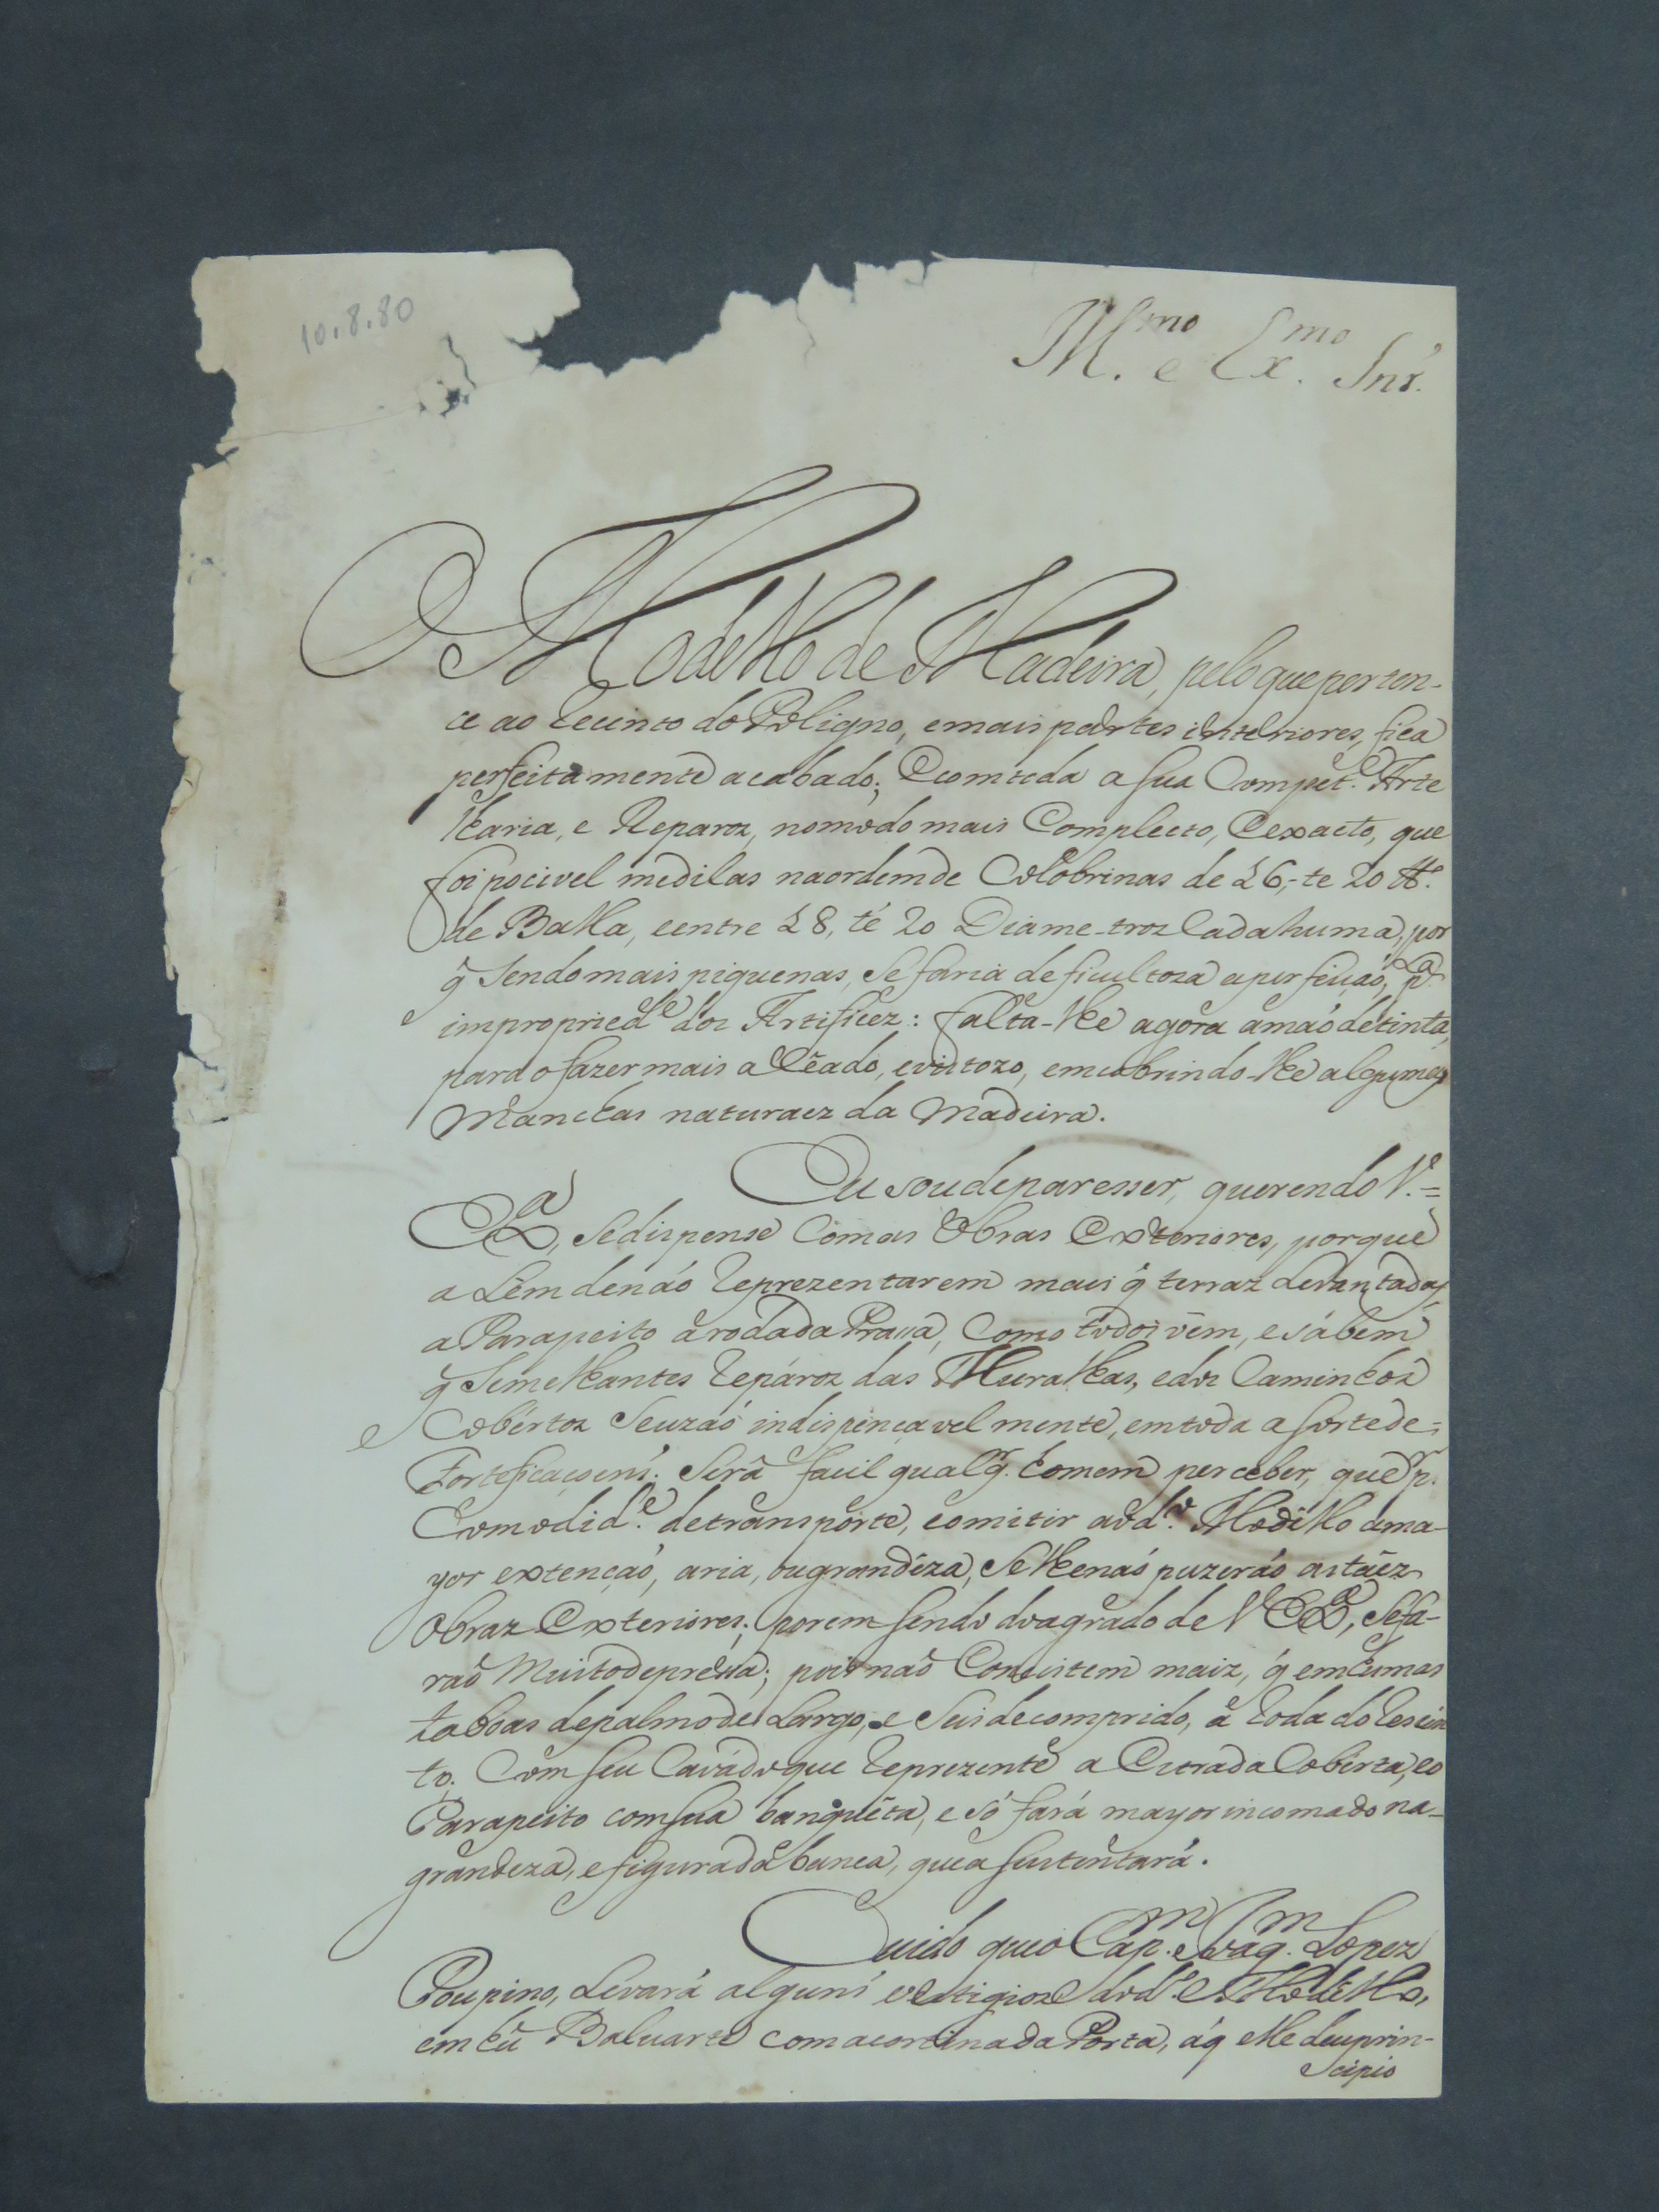 10.8.80
Ill.mo e Ex.mo Snr.
O Modello de Madeira, pelo que perten-
ce ao Recinto do Poligno, e mais partes interiores, fica
perfeitamente acabado; E com toda a sua Compet.e Arte
lharia, e Reparoz, no modo mais Complecto, E exacto, que
foi pocivel medilas na ordem de Colobrinas de 16,-te 20 lb.e
de Balla, e entre 18, té 20 Diame-troz Cada huma, por
q̃ Sendo mais piquenas, Se faria deficultoza a perfeiçaõ, p.la
impropried.e doz Artificez: falta-lhe agora a maõ de tinta,
para o fazer mais aceado, e vistozo, emcobrindo-lhe algumas
Manchas naturaez da Madeira.
Eu sou de paresser, querendo V.=
Ex.a, Se dispense Com as Obras Exteriores, porque
a Lem de naõ Reprezentarem mais q̃ terraz Levantadas,
a Parapeito a roda da Prassa, Como todos vem, e sábem
q̃ Semelhantes Repároz das Muralhas, e doz Caminhoz
Cobértoz Se uzaõ indispençavelmente, em toda a Sorte de=
Forteficaçoens. Será facil qualq.r homem perceber, que p.r
Comodid.e de transpórte, e omitir ao d.o Modello a ma-
yor extençaõ, aria, ou grandéza, Se lhe naõ puzeraõ as táez
Obraz Exteriores; porem Sendo do agrado de V Ex.a, Se fa-
raõ Muito depressa; pois naõ Consistem maiz, q̃ em humas
taboas de palmo de Largo, e Seis de comprido, á Roda do Rescin
to. Com seu Cavádo que Reprezente a Estrada Cobérta, e o
Parapeito com sua banquêta, e só fará mayor incomado na-
grandeza, e figura da banca, que a Sustentará.
Cuido que o Cap.m Joaq.m Lopez
Poupino, Levará alguns vestigioz do d.o Modello,
em hũ Baluarte com a cortina da Porta, á q̃ elle deu prin-
scipio